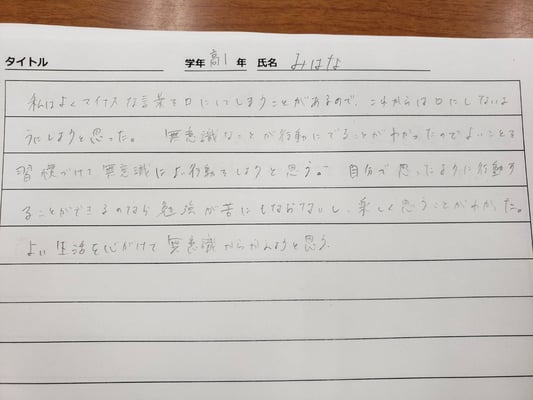 タイトル 学年 高1 年 氏名 みはな
私はよくマイナスな言葉を口にしてしまうことがあるので、これからは口にしないよ
うにしようと思った。 無意識なことが行動にでることがわかったのでよいことを
習慣づけて無意識によい行動をしようと思う。 自分で思ったように行動す
ることができるのなら勉強が苦にもならないし、楽しく思うことがわかった。
よい生活を心がけて無意識からかえようと思う。